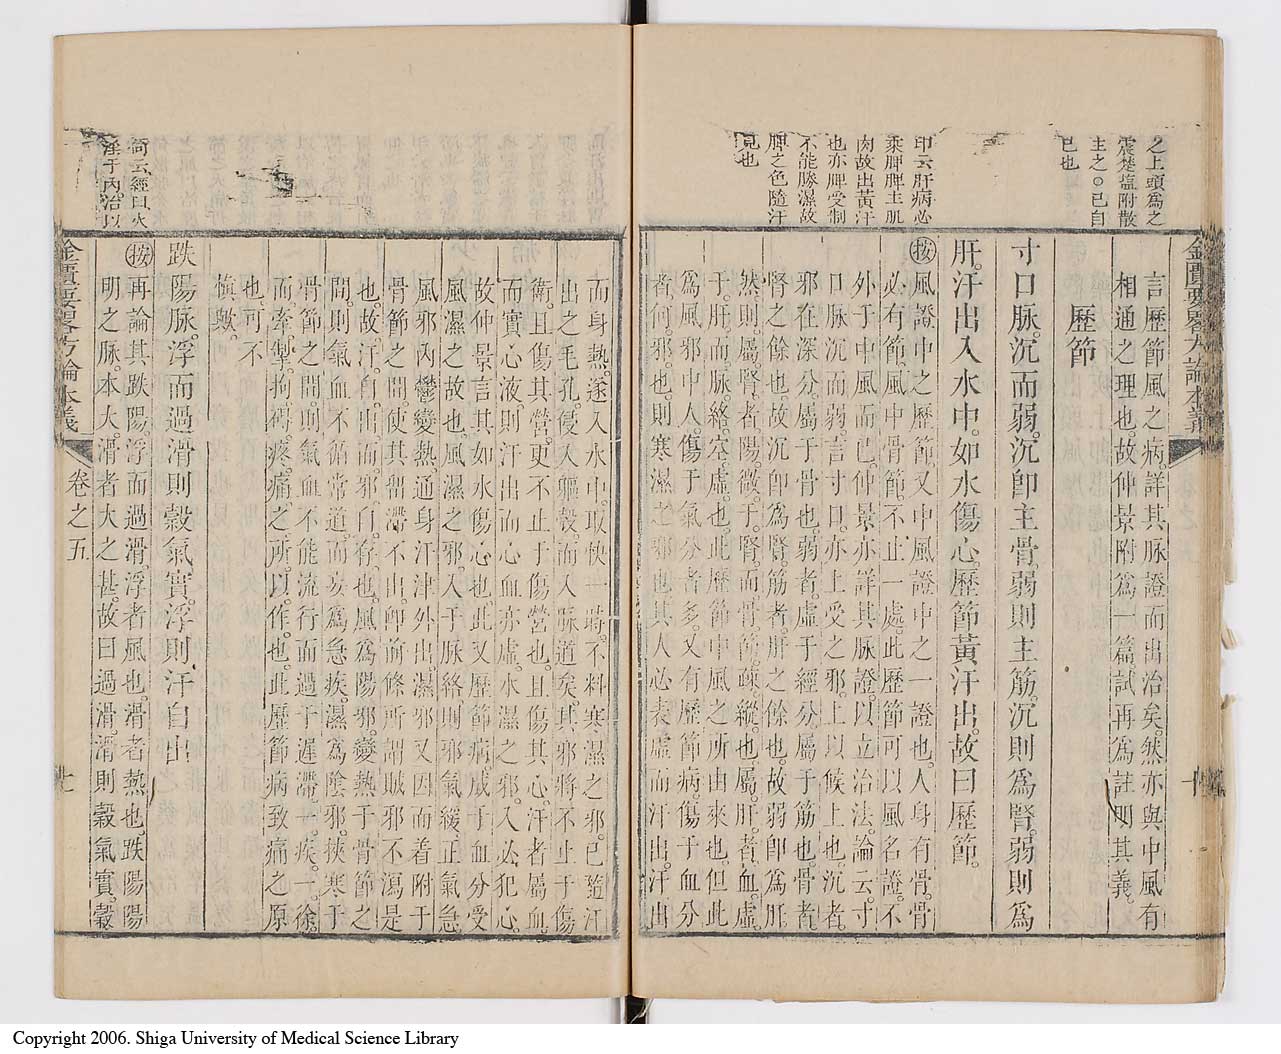 之上頭為之
震楚塩附散
主之○己自
已也
印云肝病必
乘脾脾主肌
肉故出黃汗
也亦脾受制
不能勝濕故
脾之色隨汗
見也
金匱要畧方論本義
言歷節風之病詳其脉證而出治矣然亦與中風有
相通之理也故仲景附為一篇試再為註明其義
歷節
寸口脉沉而弱沉卽主骨弱則主筋沉則為腎弱則為
肝汗出入水中如水傷心歷節黃汗出故曰歷節
按風證中之歷節又中風證中之一證也人身有骨骨
必有節風中骨節不止一處此歷節可以風名證不
外于中風而已仲景亦詳其脉證以立治法論云寸
口脉沉而弱言寸口亦上受之邪上以候上也沉者
邪在深分屬于骨也弱者虛于經分屬于筋也骨者
腎之餘也故沉卽為腎筋者肝之餘也故弱卽為肝
然則屬腎者陽微于腎而骨節疎縱也屬肝者血虛
于肝而脉絡空虛也此歷節中風之所由來也但此
為風邪中人傷于氣分者多又有歷節病傷于血分
者何邪也則寒濕之邪也其人必表虛而汗出汗出
而身熱遂入水中取快一時不料寒濕之邪已隨汗
出之毛孔侵入軀殼而入脉道矣其邪將不止于傷
衛且傷其營更不止于傷營也且傷其心汗者屬血
而實心液則汗出而心血亦虛水濕之邪入必犯心
故仲景言其如水傷心也此又歷節病感于血分受
風濕之故也風濕之邪入于脉絡則邪氣緩正氣急
風邪內鬱變熱通身汗津外出濕邪又因而着附于
骨節之間使其留滯不出卽前條所謂賊邪不瀉是
也故汗自出而邪自存也風為陽邪變熱于骨節之
間則氣血不循常道而妄為急疾濕為陰邪挾寒于
骨節之間則氣血不能流行而過于遲滯一疾一徐
而牽掣拘礙疼痛之所以作也此歷節病致痛之原
也可不
慎歟
趺陽脉浮而過滑則穀氣實浮則汗自出
按再論其趺陽浮而過滑浮者風也滑者熱也趺陽陽
明之脉本大滑者大之甚故曰過滑滑則穀氣實穀
金匱要畧方論本義
卷之五
七
尙云經曰火
淫于內治以